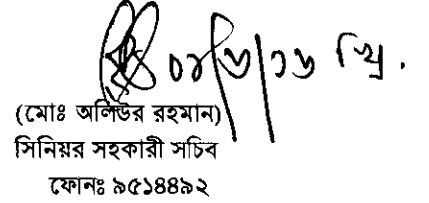 ০১/৬/১৬ খ্রি.
(মোঃ অলিউর রহমান)
সিনিয়র সহকারী সচিব
ফোনঃ ৯৫১৪৪৯২